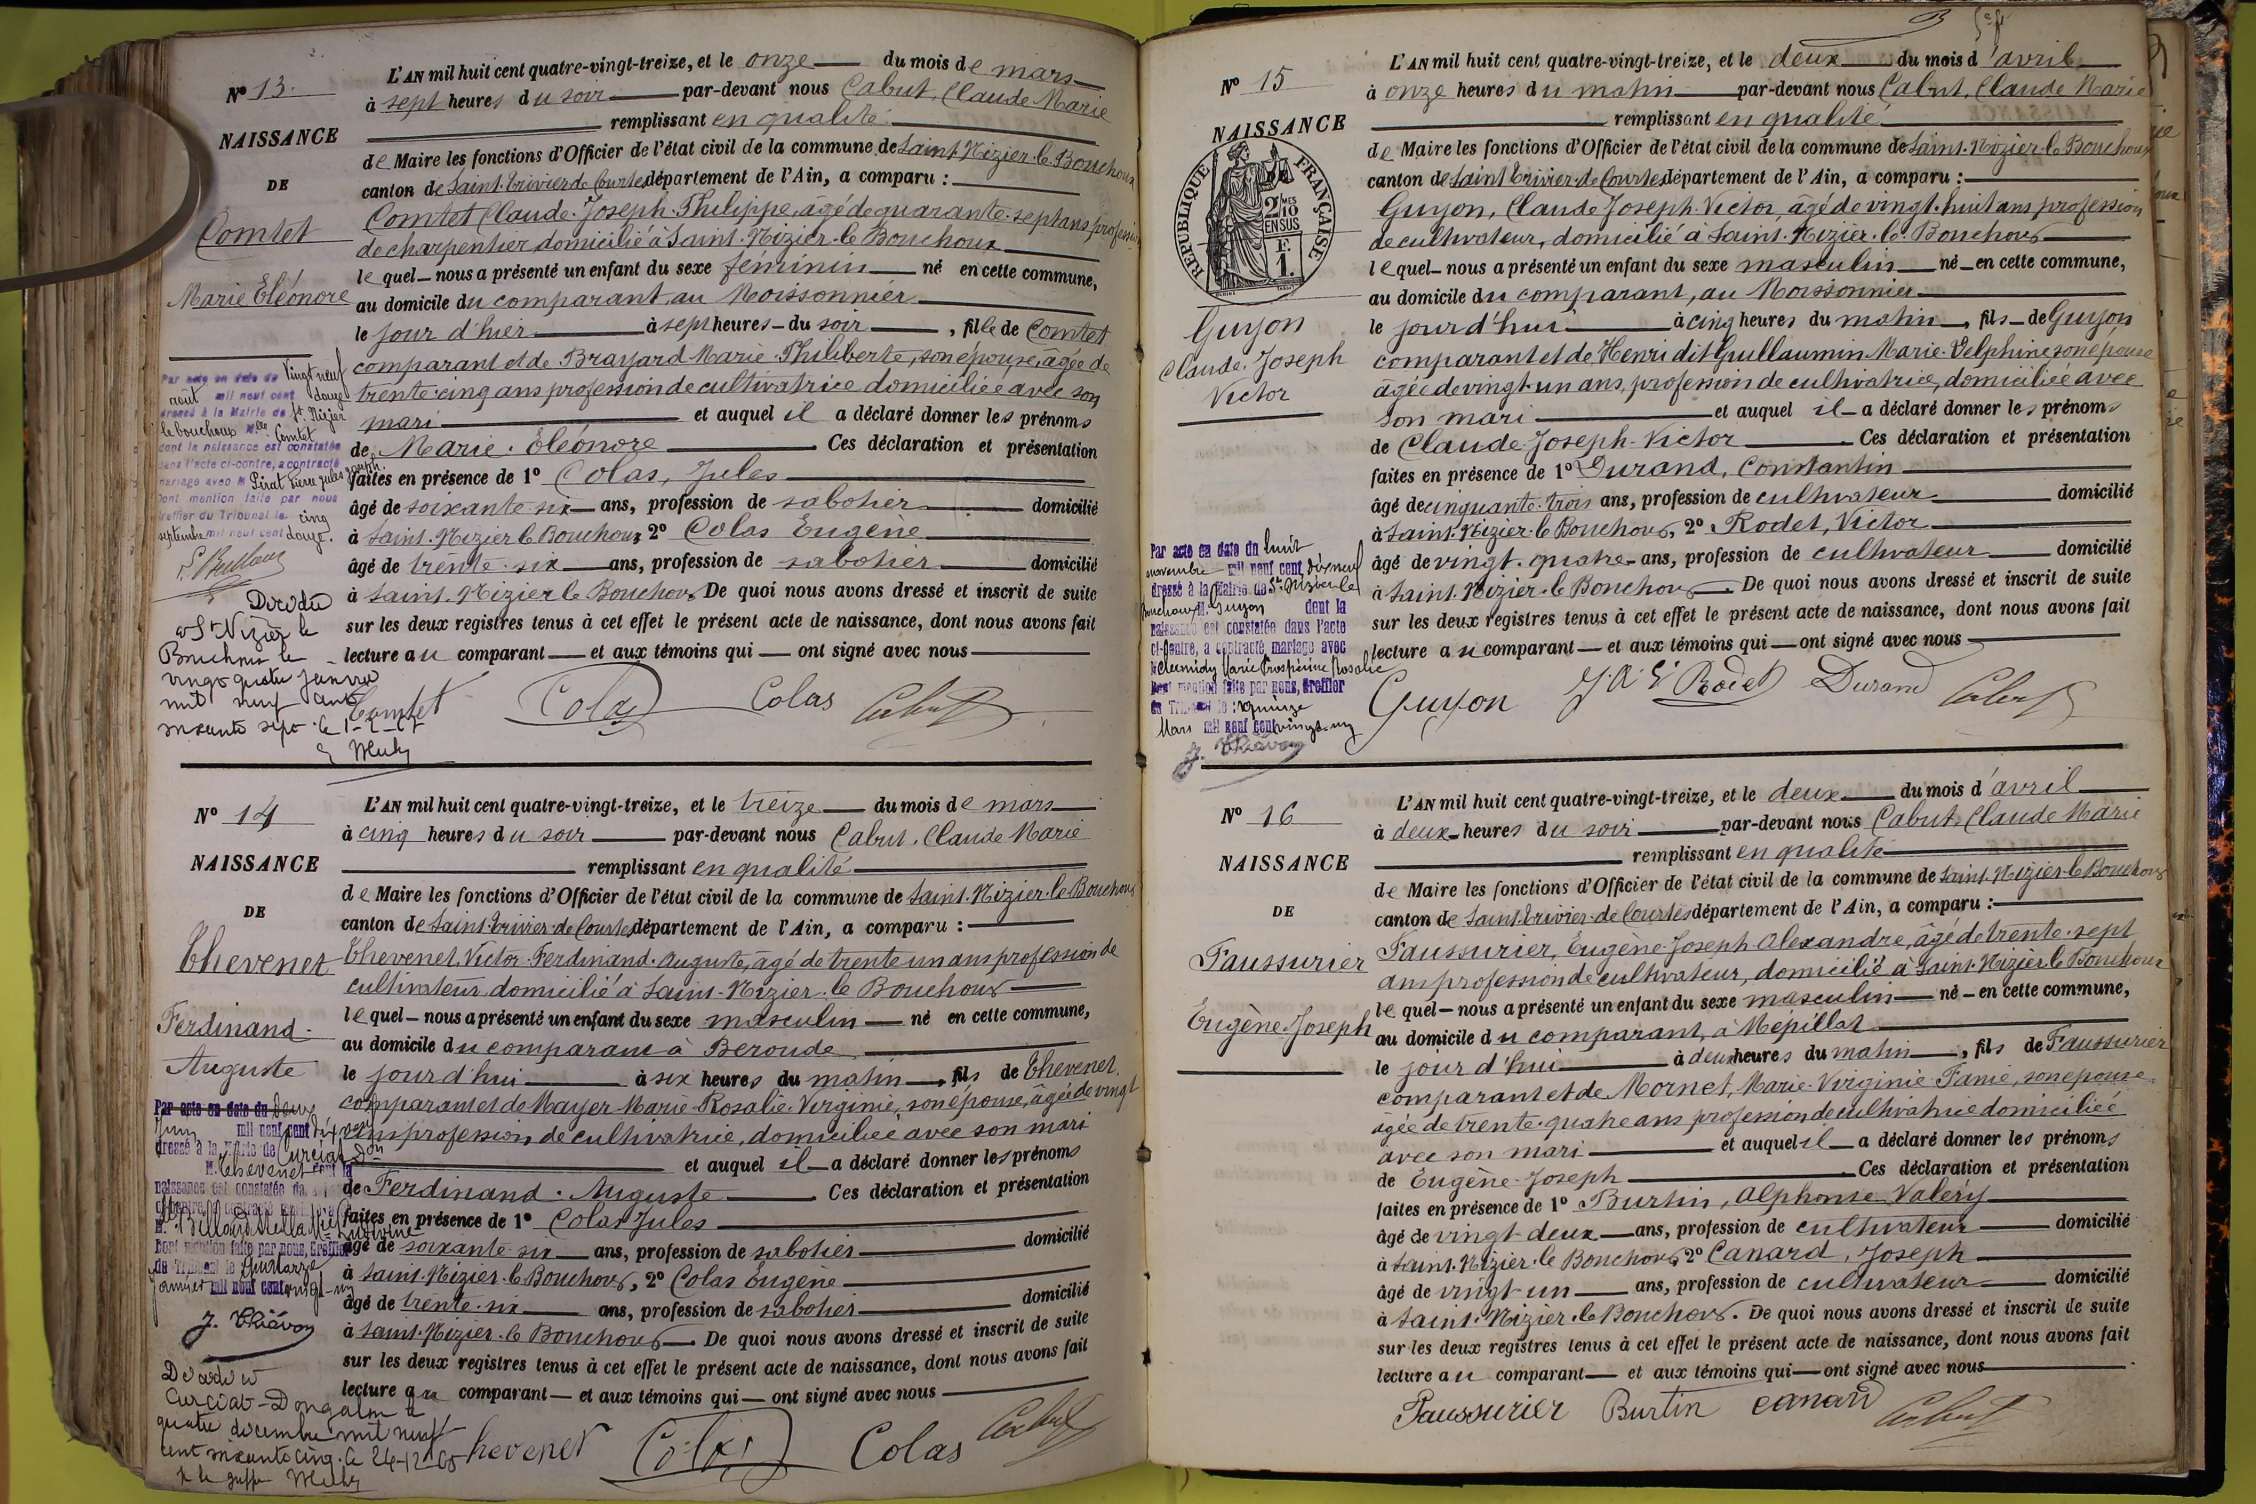 N° 13.
NAISSANCE
DE
Comtet
Marie Eléonore
L'AN mil huit cent quatre-vingt-treize, et le onze du mois de mars
à sept heures du soir par-devant nous Cabut, Claude Marie
remplissant en qualité
de Maire les fonctions d'Officier de l'état civil de la commune de Saint-Nizier-le-Bouchoux
canton de Saint-Trivier-de-Courtes département de l'Ain, a comparu :
Comtet Claude-Joseph-Philippe, âgé de quarante-sept ans, profession
de charpentier domicilié à Saint-Nizier-le-Bouchoux
lequel nous a présenté un enfant du sexe féminin né en cette commune,
au domicile du comparant, au Moissonnier
le jour d'hier à sept heures du soir, fille de Comtet
comparant et de Brayard Marie-Philiberte, son épouse, âgée de
trente-cinq ans profession de cultivatrice domiciliée avec son
mari et auquel il a déclaré donner les prénoms
de Marie-Eléonore Ces déclaration et présentation
faites en présence de 1° Colas, Jules
âgé de soixante-six ans, profession de sabotier domicilié
à Saint-Nizier-le-Bouchoux, 2° Colas Eugène
âgé de trente-six ans, profession de sabotier domicilié
à Saint-Nizier-le-Bouchoux. De quoi nous avons dressé et inscrit de suite
sur les deux registres tenus à cet effet le présent acte de naissance, dont nous avons fait
lecture au comparant et aux témoins qui ont signé avec nous
Comtet Colas Colas Cabut
Par acte en date du vingt neuf
août mil neuf cent douze
dressé à la Mairie de St Nizier
le bouchoux Mlle Comtet
dont la naissance est constatée
dans l'acte ci-contre, a contracté
mariage avec M Pirat Pierre Jules Joseph.
Dont mention faite par nous
Greffier du Tribunal le cinq
septembre mil neuf cent douze.
Décédée
à St Nizier le
Bouchoux le
vingt quatre janvier
mil neuf cent
soixante sept. le 1-2-67
N° 14
NAISSANCE
DE
Thevenet
Ferdinand
Auguste
L'AN mil huit cent quatre-vingt-treize, et le treize du mois de mars
à cinq heures du soir par-devant nous Cabut, Claude Marie
remplissant en qualité
de Maire les fonctions d'Officier de l'état civil de la commune de Saint-Nizier-le-Bouchoux
canton de Saint-Trivier-de-Courtes département de l'Ain, a comparu :
Thevenet, Victor-Ferdinand-Auguste, âgé de trente un ans profession de
cultivateur domicilié à Saint-Nizier-le-Bouchoux
lequel nous a présenté un enfant du sexe masculin né en cette commune,
au domicile du comparant à Beroude
le jour d'hui à six heures du matin, fils de Thevenet
comparant et de Mayer Marie-Rosalie-Virginie, son épouse, âgée de vingt
ans profession de cultivatrice, domiciliée avec son mari
et auquel il a déclaré donner les prénoms
de Ferdinand-Auguste Ces déclaration et présentation
faites en présence de 1° Colas Jules
âgé de soixante-six ans, profession de sabotier domicilié
à Saint-Nizier-le-Bouchoux, 2° Colas Eugène
âgé de trente-six ans, profession de sabotier domicilié
à Saint-Nizier-le-Bouchoux. De quoi nous avons dressé et inscrit de suite
sur les deux registres tenus à cet effet le présent acte de naissance, dont nous avons fait
lecture au comparant et aux témoins qui ont signé avec nous
Thevenet Colas Colas Cabut
Par acte en date du
Juin mil neuf cent
dressé à la Mairie de Curciat-Don
M. Thevenet dont la
naissance est constatée dans
ci-contre, a contracté
Billoud Stella
Dont mention faite par nous, Greffier
du Tribunal le quatorze
Janvier mil neuf cent vingt-un
J. Thiévon
Décédé à
Curciat-Dongalon le
quatre décembre mil neuf
cent soixante cinq. le 24-12-65
N° 15
NAISSANCE
RÉPUBLIQUE FRANÇAISE
2/10 MES
EN SUS
F.
1.
Guyon
Claude-Joseph
Victor
L'AN mil huit cent quatre-vingt-treize, et le deux du mois d'avril
à onze heures du matin par-devant nous Cabut, Claude Marie
remplissant en qualité
de Maire les fonctions d'Officier de l'état civil de la commune de Saint-Nizier-le-Bouchoux
canton de Saint-Trivier-de-Courtes département de l'Ain, a comparu :
Guyon, Claude Joseph-Victor, âgé de vingt-huit ans profession
de cultivateur, domicilié à Saint-Nizier-le-Bouchoux
lequel nous a présenté un enfant du sexe masculin né en cette commune,
au domicile du comparant, au Moissonnier
le jour d'hui à cinq heures du matin, fils de Guyon
comparant et de Henri dit Guillaumin Marie-Delphine son épouse
âgée de vingt-un ans, profession de cultivatrice, domiciliée avec
son mari et auquel il a déclaré donner les prénoms
de Claude-Joseph-Victor Ces déclaration et présentation
faites en présence de 1° Durand, Constantin
âgé de cinquante-trois ans, profession de cultivateur domicilié
à Saint-Nizier-le-Bouchoux, 2° Rodet, Victor
âgé de vingt-quatre ans, profession de cultivateur domicilié
à Saint-Nizier-le-Bouchoux. De quoi nous avons dressé et inscrit de suite
sur les deux registres tenus à cet effet le présent acte de naissance, dont nous avons fait
lecture au comparant et aux témoins qui ont signé avec nous
Guyon Rodet Durand Cabut
Par acte en date du huit
novembre mil neuf cent dix neuf
dressé à la Mairie de St Nizier le
Bouchoux M. Guyon dont la
naissance est constatée dans l'acte
ci-contre, a contracté mariage avec
Marie Prospérine Rosalie
Dont mention faite par nous, Greffier
du Tribunal le quinze
Mars mil neuf cent vingt-un
J. Thiévon
N° 16
NAISSANCE
DE
Faussurier
Eugène-Joseph
L'AN mil huit cent quatre-vingt-treize, et le deux du mois d'avril
à deux heures du soir par-devant nous Cabut, Claude Marie
remplissant en qualité
de Maire les fonctions d'Officier de l'état civil de la commune de Saint-Nizier-le-Bouchoux
canton de Saint-Trivier-de-Courtes département de l'Ain, a comparu :
Faussurier, Eugène-Joseph-Alexandre, âgé de trente-sept
ans profession de cultivateur, domicilié à Saint-Nizier-le-Bouchoux
lequel nous a présenté un enfant du sexe masculin né en cette commune,
au domicile du comparant, à Mépillat
le jour d'hui à deux heures du matin, fils de Faussurier
comparant et de Mornet, Marie-Virginie-Fanie, son épouse
âgée de trente-quatre ans profession de cultivatrice domiciliée
avec son mari et auquel il a déclaré donner les prénoms
de Eugène-Joseph Ces déclaration et présentation
faites en présence de 1° Burtin, Alphonse Valéry
âgé de vingt-deux ans, profession de cultivateur domicilié
à Saint-Nizier-le-Bouchoux, 2° Canard, Joseph
âgé de vingt-un ans, profession de cultivateur domicilié
à Saint-Nizier-le-Bouchoux. De quoi nous avons dressé et inscrit de suite
sur les deux registres tenus à cet effet le présent acte de naissance, dont nous avons fait
lecture au comparant et aux témoins qui ont signé avec nous
Faussurier Burtin Canard Cabut